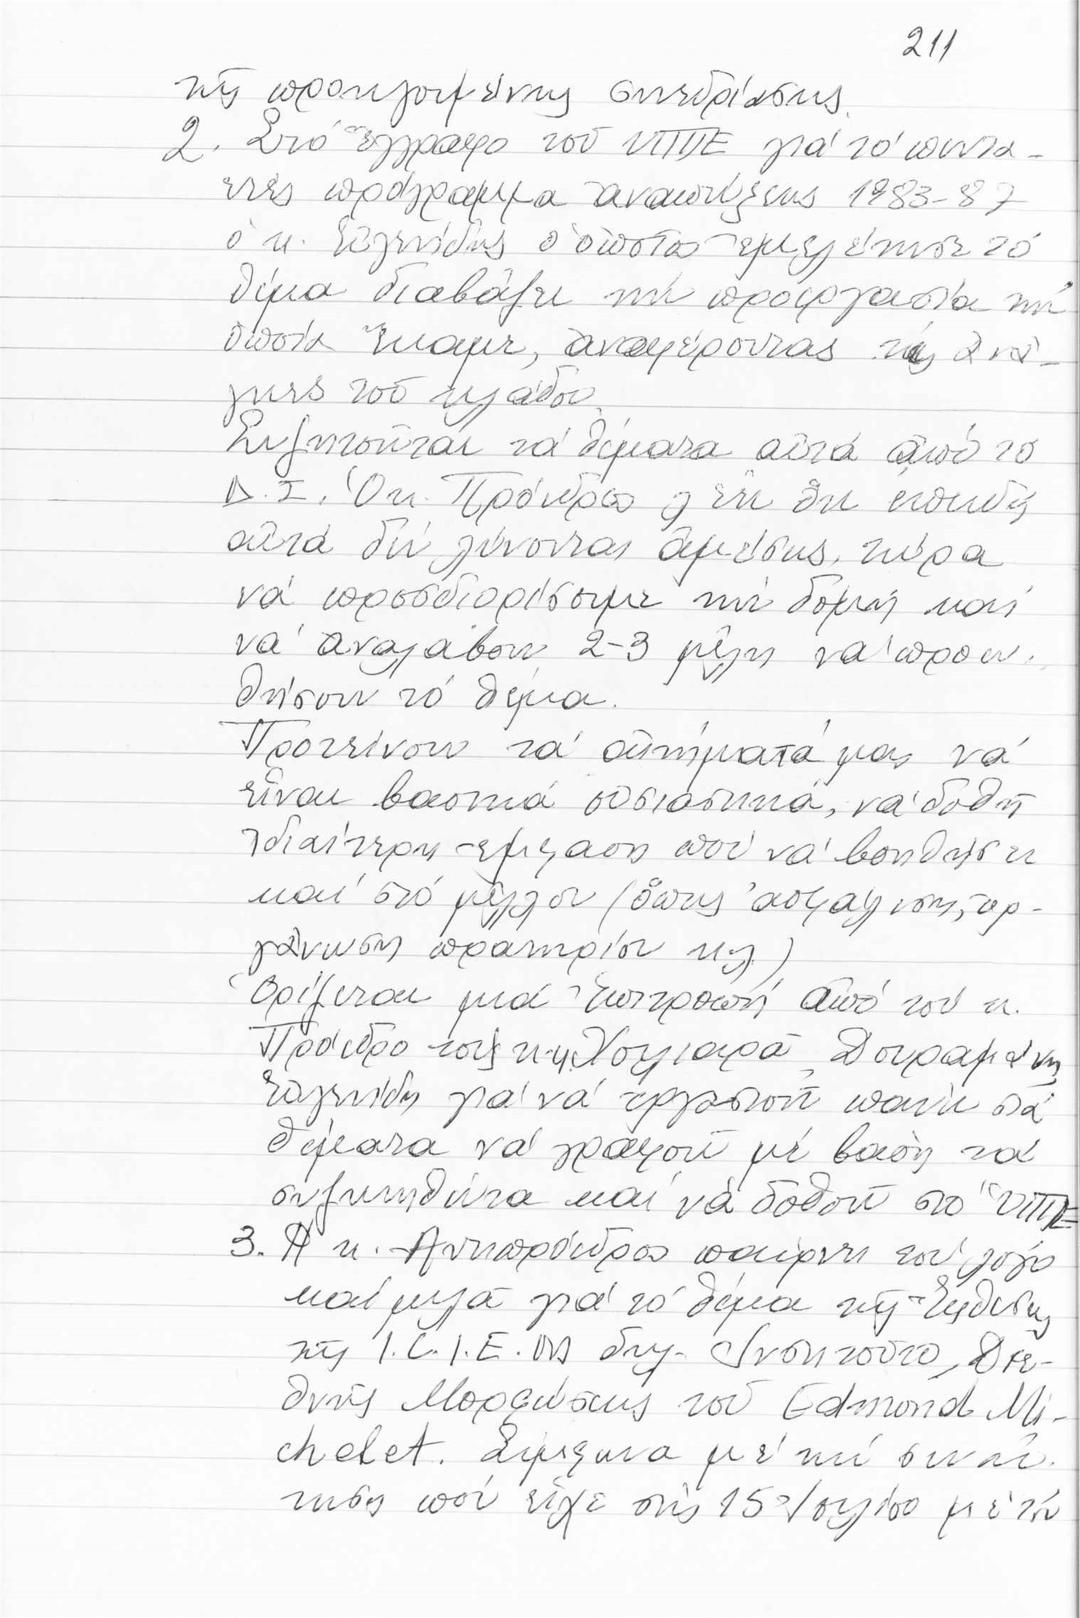 211
τῆς προηγουμένης συνεδρίασης.
2. Στό ἔγγραφο τοῦ ΥΠΠΕ γιά τό πεντα-
ετές πρόγραμμα ἀναπτύξεως 1983-87
ὁ κ. Εὐγενίδης ὁ ὁποῖος ἐμελέτησε τό
θέμα διαβάζει τήν προεργασία τήν
ὁποία ἔκαμε, ἀναφέροντας τίς ἀνά-
γκες τοῦ κλάδου.
Συζητοῦνται τά θέματα αὐτά ἀπό το
Δ.Σ. Ὁ κ. Πρόεδρος λέει ὅτι ἐπειδή
αὐτά δέν λύνονται ἀμέσως, τώρα
νά προσδιορίσουμε τήν δομή καί
νά ἀναλάβουν 2-3 μέλη νά προω-
θήσουν τό θέμα.
Προτείνουν τά αἰτήματά μας νά
εἶναι βασικά οὐσιαστικά, νά δοθῆ
ἰδιαίτερη ἔμφαση πού νά βοηθήσει
καί στό μέλλον (ὅπως ἀσφάλιση, ὀρ-
γάνωση πρατηρίου κλ)
Ὁρίζεται μιά Ἐπιτροπή ἀπό τον κ.
Πρόεδρο τούς κ.κ. Χουλιαρᾶ, Δουραμάνη,
Εὐγενίδη γιά νά ἐργαστοῦν πάνω στά
θέματα νά γραφοῦν μέ βάση τά
συζητηθέντα καί νά δοθοῦν στο ΥΠΠΕ
3. Ἡ κ. Ἀντιπρόεδρος παίρνει τον λόγο
καί μιλᾶ γιά τό θέμα τῆς Ἔκθεσης
τῆς I.C.I.E. δηλ. Ἰνστιτοῦτο, Διε-
θνῆς Μορφώσεως τοῦ Edmond Mi-
chelet. Σύμφωνα μέ τήν συνάν-
τηση πού εἶχε στίς 15 Ἰουλίου μέ τόν